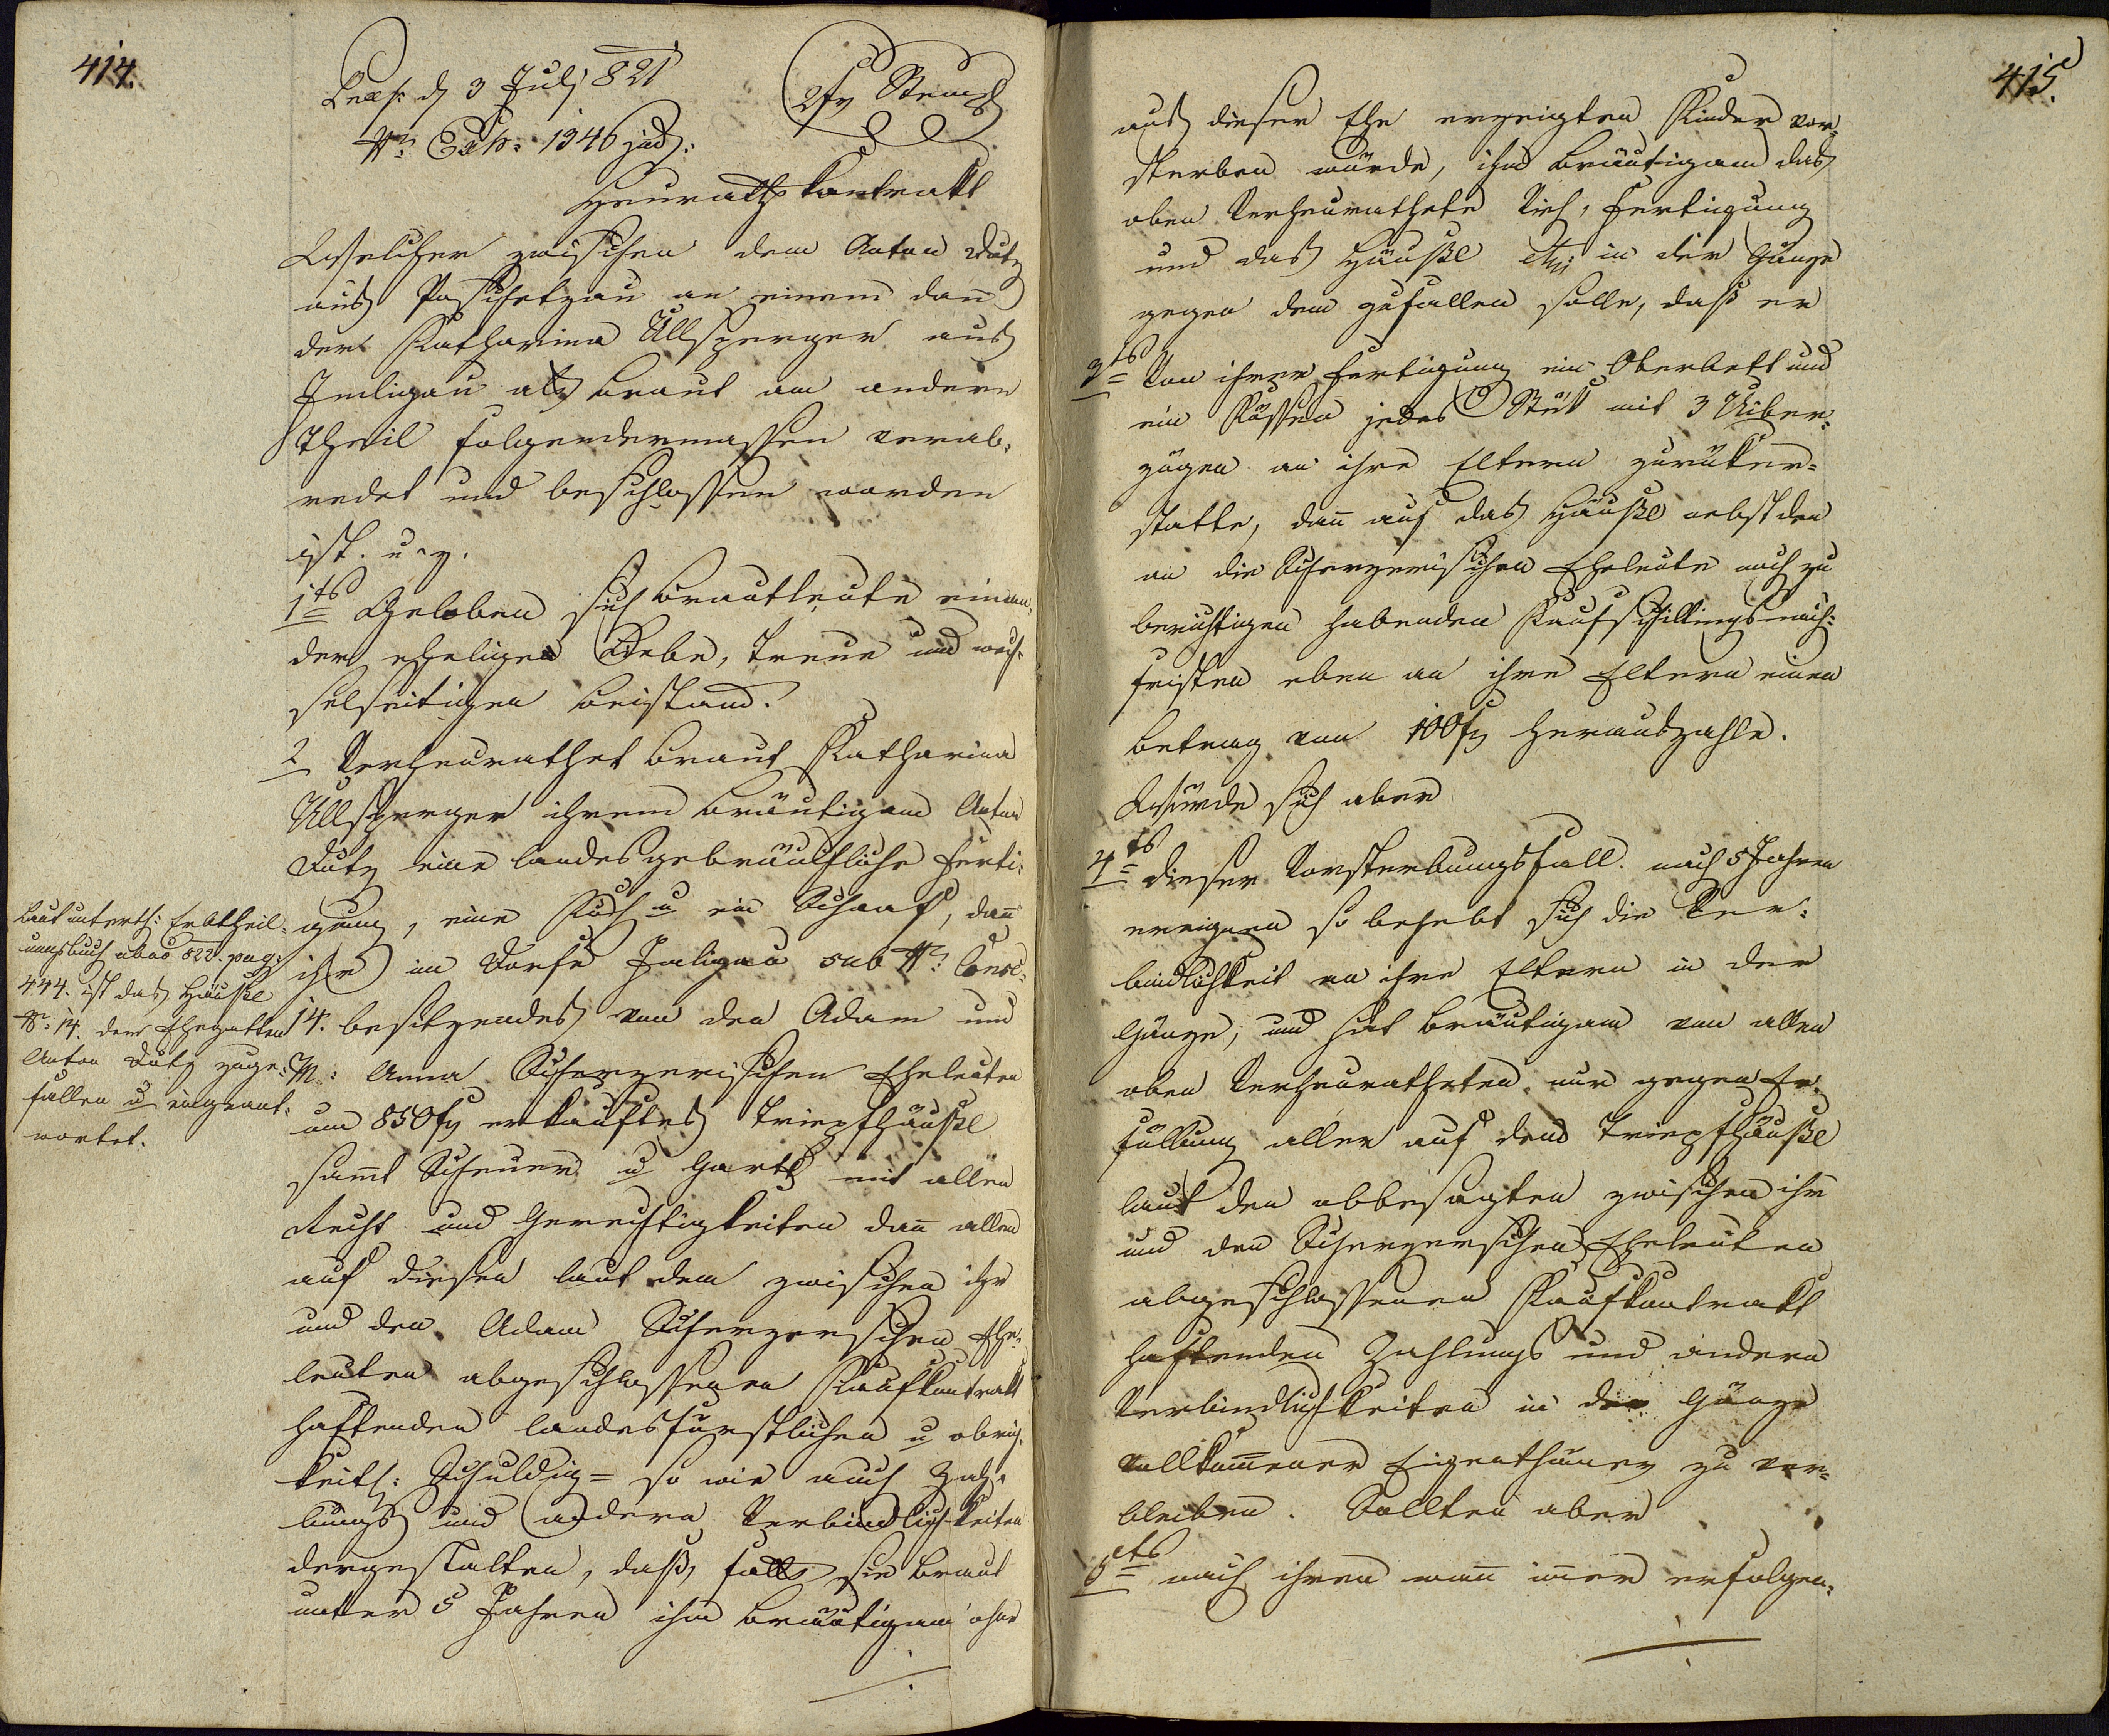 414.
Præs: d 3 Julj 821
2 fr Stempl
Nr: Exh: 1946 jud:
Heuraths Kontrakt
Welcher zwischen dem Anton Dutz
aus Poschetzau an einem dann
der Katharina Ullsperger aus
Imligau als Braut am andern
Theil folgendermassen verab-
redet und beschlossen worden
ist. u. z.
1tes Geloben sich Brautleute einan-
der eheligen Liebe, Treue und wech-
selseitigen Beistand.
2 Verheurathet Braut Katharina
Ullsperger ihrem Bräutigam Anton
Dutz eine landesgebräuchliche Ferti-
gung, eine Kuh u ein Schaaf, dann
ihr im Dorfe Imligau sub Nr: Consc:
14. besitzendes von den Adam und
M: Anna Scherzerischen Eheleuten
um 850 fr erkauftes Tripfhäußl
samt Scheuer u Gartl mit allen
Recht und Gerechtigkeiten dann allen
auf diesen laut dem zwischen ihr
und den Adam Scherzerschen Ehe-
leuten abgeschlossenen Kaufkontrakt
haftenden landesfürstlichen u obrig-
keitl: Schuldig= so wie auch Zah-
lungs und andern Verbindlichkeiten
dergestalten, daß, falls sie Braut
unter 5 Jahren ihm Bräutigam ohne
Laut unterth: Erbtheil-
ungsbuch abao 822. pag:
444. ist das Häußl
Nr: 14. dem Ehegatten
Anton Dutz zuge-
fallen u eingeant-
wortet.
415.
aus dieser Ehe erzeigten Kinder vor-
sterben würde, ihm Bräutigam das
oben Verheurathete Vieh, Fertigung
und das Häußl in der Gänze
gegen dem zufallen solle, daß er
3ts Von ihrer Fertigung ein Oberbett und
ein Küssen jedes Stük mit 3 Uiber-
zügen an ihre Eltern zurüker-
statte, dann auf das Häußl nebst den
an die Scherzerischen Eheleute noch zu
berichtigen habenden Kaufschillingsnach-
fristen eben an ihre Eltern einen
Betrag von 100 fr herauszahle.
Würde sich aber
4ts dieser Vorsterbungsfall nach 5 Jahren
ereignen so behebt sich die Ver-
bindlichkeit an ihre Eltern in der
Gänze, und hat Bräutigam von allen
oben Verheuratheten nur gegen Er-
füllung aller auf dem Tripfhäußl
laut den obbesagten zwischen ihr
und den Scherzerschen Eheleuten
abgeschlossenen Kaufkontrakt
haftenden Zahlungs und andern
Verbindlichkeiten in der Gänze
vollkommener Eigenthümer zu ver-
bleiben. Sollten aber
5ts nach ihren wann immer erfolgen-